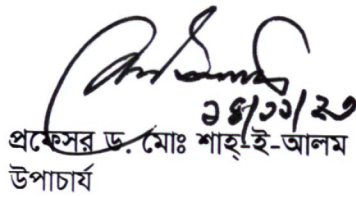 ১৪/১১/২৩
প্রফেসর ড. মোঃ শাহ্-ই-আলম
উপাচার্য